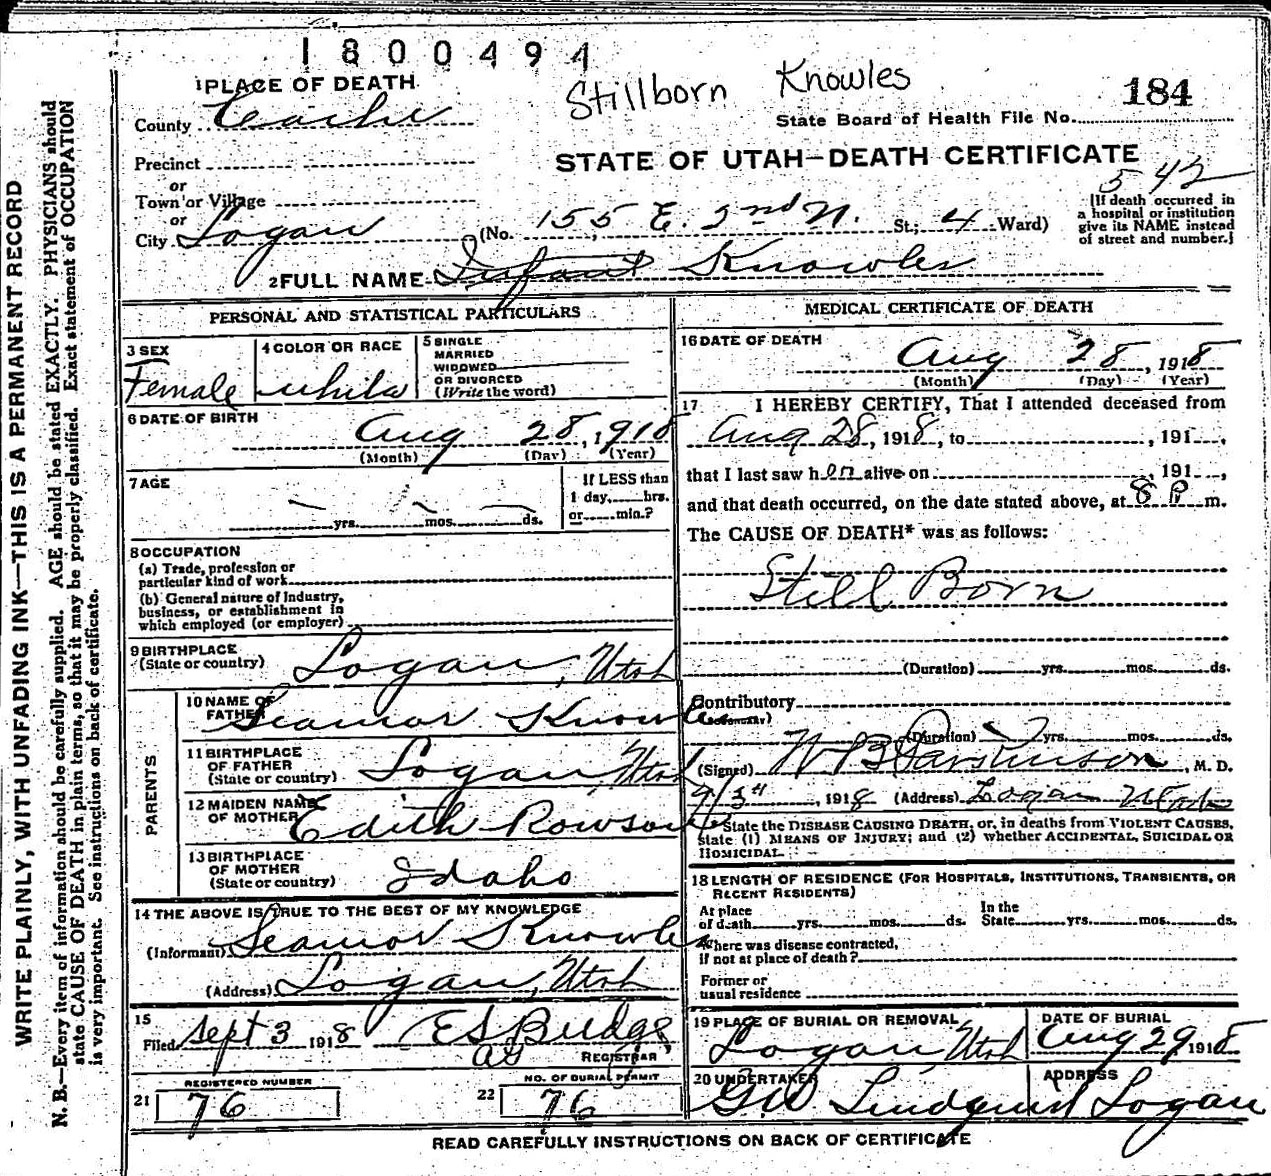 1800494
Stillborn Knowles
1 PLACE OF DEATH
184
County Cache
State Board of Health File No.
Precinct
STATE OF UTAH—DEATH CERTIFICATE
or
542
Town or Village
or
City Logan (No. 155 E. 2nd N. St.; 4 Ward)
[If death occurred in
a hospital or institution
give its NAME instead
of street and number.]
2 FULL NAME Infant Knowles
PERSONAL AND STATISTICAL PARTICULARS
3 SEX
Female
4 COLOR OR RACE
white
5 SINGLE
MARRIED
WIDOWED
OR DIVORCED
(Write the word)
6 DATE OF BIRTH
Aug 28, 1918
(Month) (Day) (Year)
7 AGE
If LESS than
1 day, hrs.
or min.?
yrs. mos. ds.
8 OCCUPATION
(a) Trade, profession or
particular kind of work
(b) General nature of Industry,
business, or establishment in
which employed (or employer)
9 BIRTHPLACE
(State or country) Logan, Utah
PARENTS
10 NAME OF
FATHER Seamor Knowles
11 BIRTHPLACE
OF FATHER
(State or country) Logan, Utah
12 MAIDEN NAME
OF MOTHER Edith Rowson
13 BIRTHPLACE
OF MOTHER
(State or country) Idaho
14 THE ABOVE IS TRUE TO THE BEST OF MY KNOWLEDGE
(Informant) Seamor Knowles
(Address) Logan, Utah
15
Filed Sept 3 1918 E S Budge
REGISTRAR
REGISTERED NUMBER
21 76
NO. OF BURIAL PERMIT
22 76
MEDICAL CERTIFICATE OF DEATH
16 DATE OF DEATH
Aug 28, 1918
(Month) (Day) (Year)
17 I HEREBY CERTIFY, That I attended deceased from
Aug 28, 1918, to , 191 ,
that I last saw her alive on , 191 ,
and that death occurred, on the date stated above, at 8 P m.
The CAUSE OF DEATH* was as follows:
Still Born
(Duration) yrs. mos. ds.
Contributory
(Secondary)
(Duration) yrs. mos. ds.
(Signed) W B Parkinson, M. D.
9/3", 1918 (Address) Logan Utah
State the DISEASE CAUSING DEATH, or, in deaths from VIOLENT CAUSES,
state (1) MEANS OF INJURY; and (2) whether ACCIDENTAL, SUICIDAL OR
HOMICIDAL.
18 LENGTH OF RESIDENCE (FOR HOSPITALS, INSTITUTIONS, TRANSIENTS, OR
RECENT RESIDENTS)
At place
of death yrs. mos. ds.
In the
State yrs. mos. ds.
Where was disease contracted,
if not at place of death?
Former or
usual residence
19 PLACE OF BURIAL OR REMOVAL
Logan, Utah
DATE OF BURIAL
Aug 29 1918
20 UNDERTAKER
G W Lindquist
ADDRESS
Logan
READ CAREFULLY INSTRUCTIONS ON BACK OF CERTIFICATE
WRITE PLAINLY, WITH UNFADING INK—THIS IS A PERMANENT RECORD
N. B.—Every item of information should be carefully supplied. AGE should be stated EXACTLY. PHYSICIANS should
state CAUSE OF DEATH in plain terms, so that it may be properly classified. Exact statement of OCCUPATION
is very important. See instructions on back of certificate.